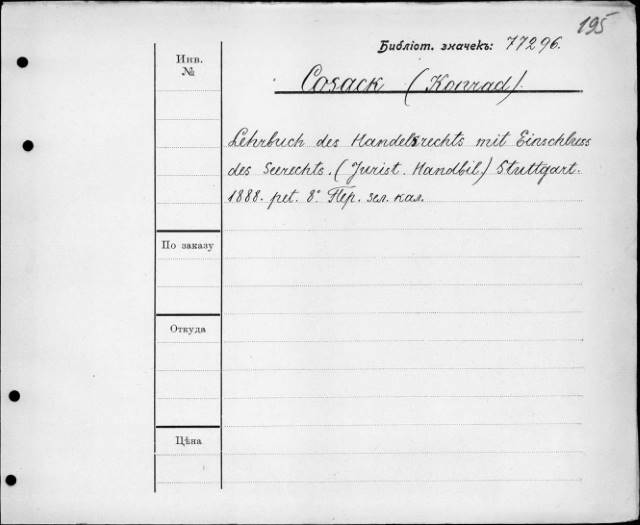 195
Библіот. значекъ: 77296.
Инв.
№
Cosack (Konrad).
Lehrbuch des Handelsrechts mit Einschluss
des Seerechts. (Jurist. Handbil.) Stuttgart.
1888. pet. 8° Пер. зел. кал.
По заказу
Откуда
Цѣна